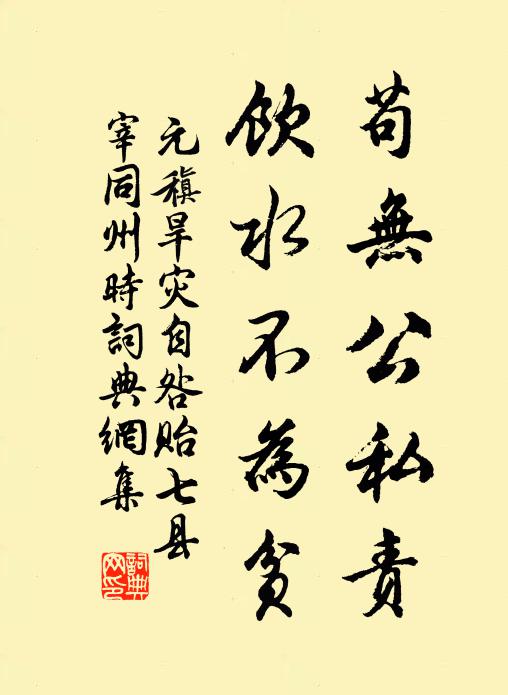 苟無公私責
飲水不為貧
元稹旱灾自咎貽七县
宰同州時詞典網集
詞典網印